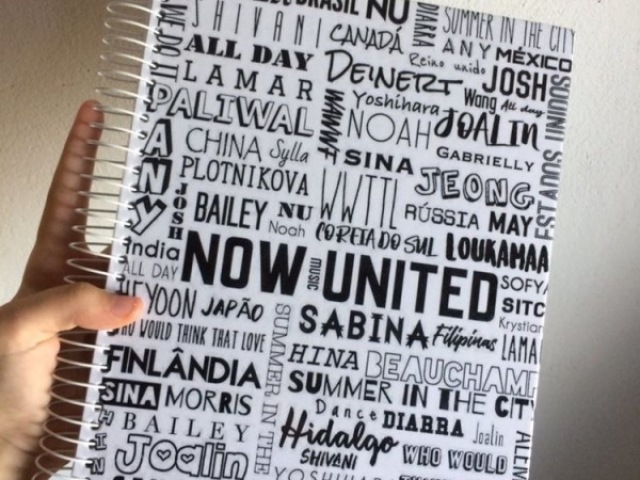 BRASIL NU
SHIVANI
CANADÁ
DIARRA
SUMMER IN THE CITY
ALL DAY
ANY MÉXICO
LAMAR
DEINERT
Reino unido
JOSH
PALIWAL
Yoshihara
Wang All day
WWWT
NOAH
JOALIN
ANY
CHINA Sylla
SINA
GABRIELLY
PLOTNIKOVA
WWTTL
JEONG
JOSH
BAILEY NU
RÚSSIA MAY
Noah
COREIA DO SUL
LOUKAMAA
India
ALL DAY
NOW UNITED
MUSIC
SOFYA
HEYOON JAPÃO
SITC
WHO WOULD THINK THAT LOVE
SABINA
Filipinas
Krystian
LAMA
SUMMER IN THE
FINLÂNDIA
HINA BEAUCHAMP
SINA MORRIS
SUMMER IN THE CITY
BAILEY
Dance DIARRA Joalin
Joalin
Hidalgo
WHO WOULD
SHIVANI
YOSHIHA